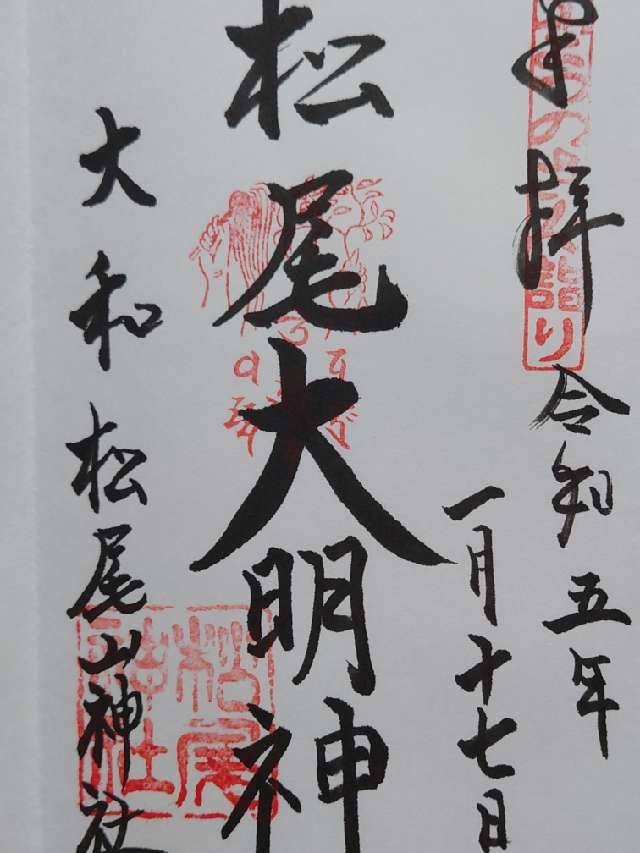 奉拝
令和五年
一月十七日
松尾大明神
大和松尾山神社
詣り
松尾
神社